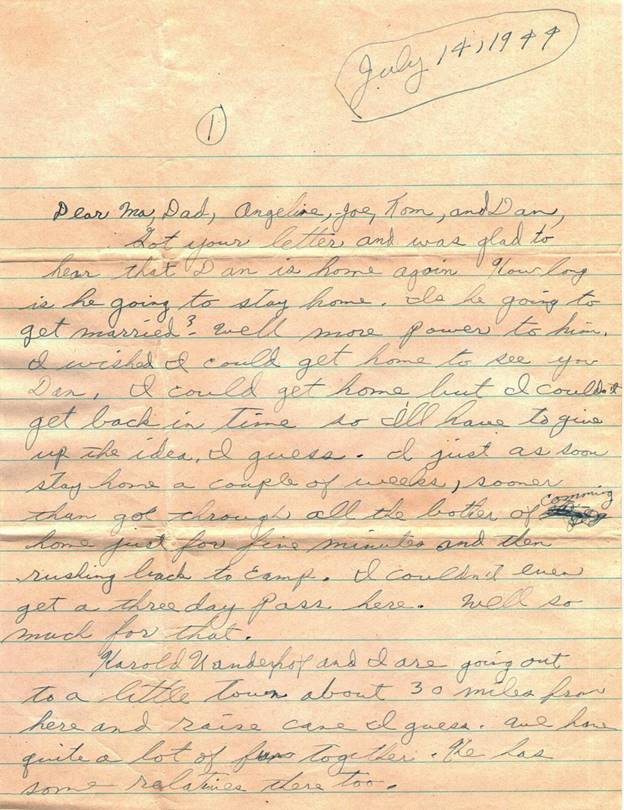 July 14, 1944
1
Dear Ma, Dad, Angeline, Joe, Tom, and Dan,
Got your letter and was glad to
hear that Dan is home again How long
is he going to stay home. Is he going to
get married? Well more power to him.
I wished I could get home to see you
Dan, I could get home but I couldn't
get back in time so I'll have to give
up the idea, I guess. I just as soon
stay home a couple of weeks, sooner
than go through all the bother of comming
home just for five minutes and then
rushing back to Camp. I couldn't even
get a three day Pass here. Well so
much for that.
Harold and I are going out
to a little town about 30 miles from
here and raise cane I guess. We have
quite a lot of fun together. He has
some relatives there too.